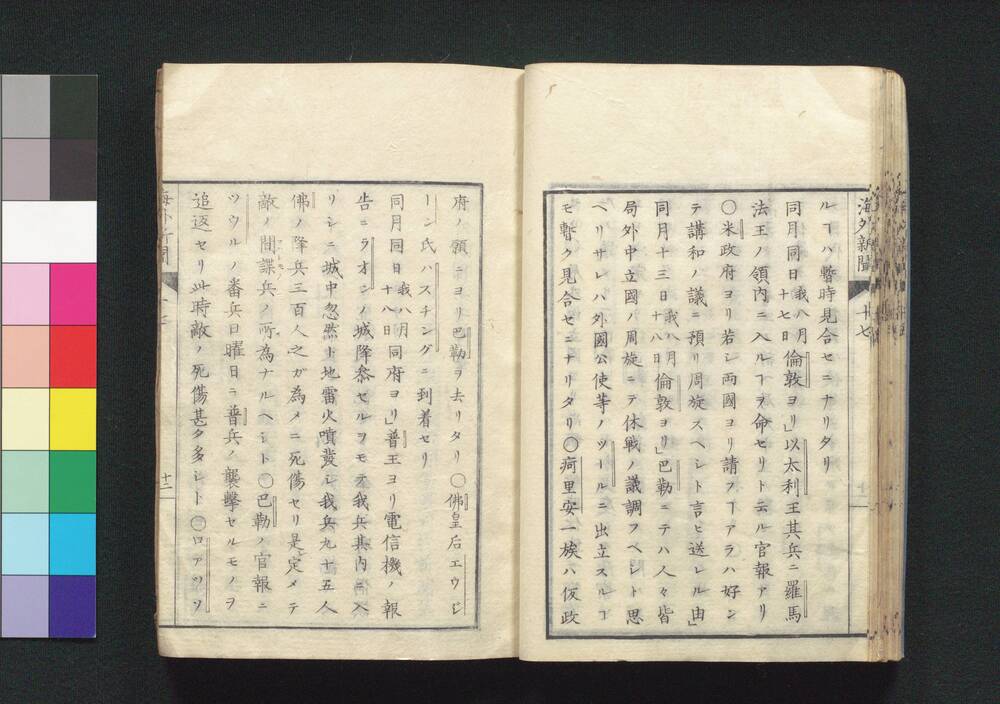 海外新聞
廿七
ルヿハ暫時見合セニナリタリ
同月同日我八月十七日倫敦ヨリ」以太利王其兵ニ羅馬
法王ノ領内ニ入ルヿヲ命セリト云ル官報アリ
〇米政府ヨリ若シ両國ヨリ請フヿアラハ好ン
テ講和ノ議ニ預リ周旋スヘシト言ヒ送レル由」
同月十三日我八月十八日倫敦ヨリ」巴勒ニテハ人々皆
局外中立國ノ周旋ニテ休戦ノ議調フヘシト思
ヘリサレハ外國公使等ノツールニ出立スルヿ
モ暫ク見合セニナリタリ〇痾里安一族ハ仮政
府ノ願ニヨリ巴勒ヲ去リタリ〇佛皇后エウジ
ーン氏ハスチングニ到着セリ
同月同日我八月十八日同府ヨリ」普王ヨリ電信機ノ報
告ニラオンノ城降参セルヲモテ我兵其内ニ入
リシニ城中忽然ト地雷火噴發シ我兵九十五人
佛ノ降兵三百人之ガ為メニ死傷セリ是定メテ
敵ノ間諜兵ノ所為ナルヘシト〇巴勒ノ官報ニ
ツウルノ番兵日曜日ニ普兵ノ襲撃セルモノヲ
追返セリ此時敵ノ死傷甚タ多シト〇ロアツソ
海外新聞
十二